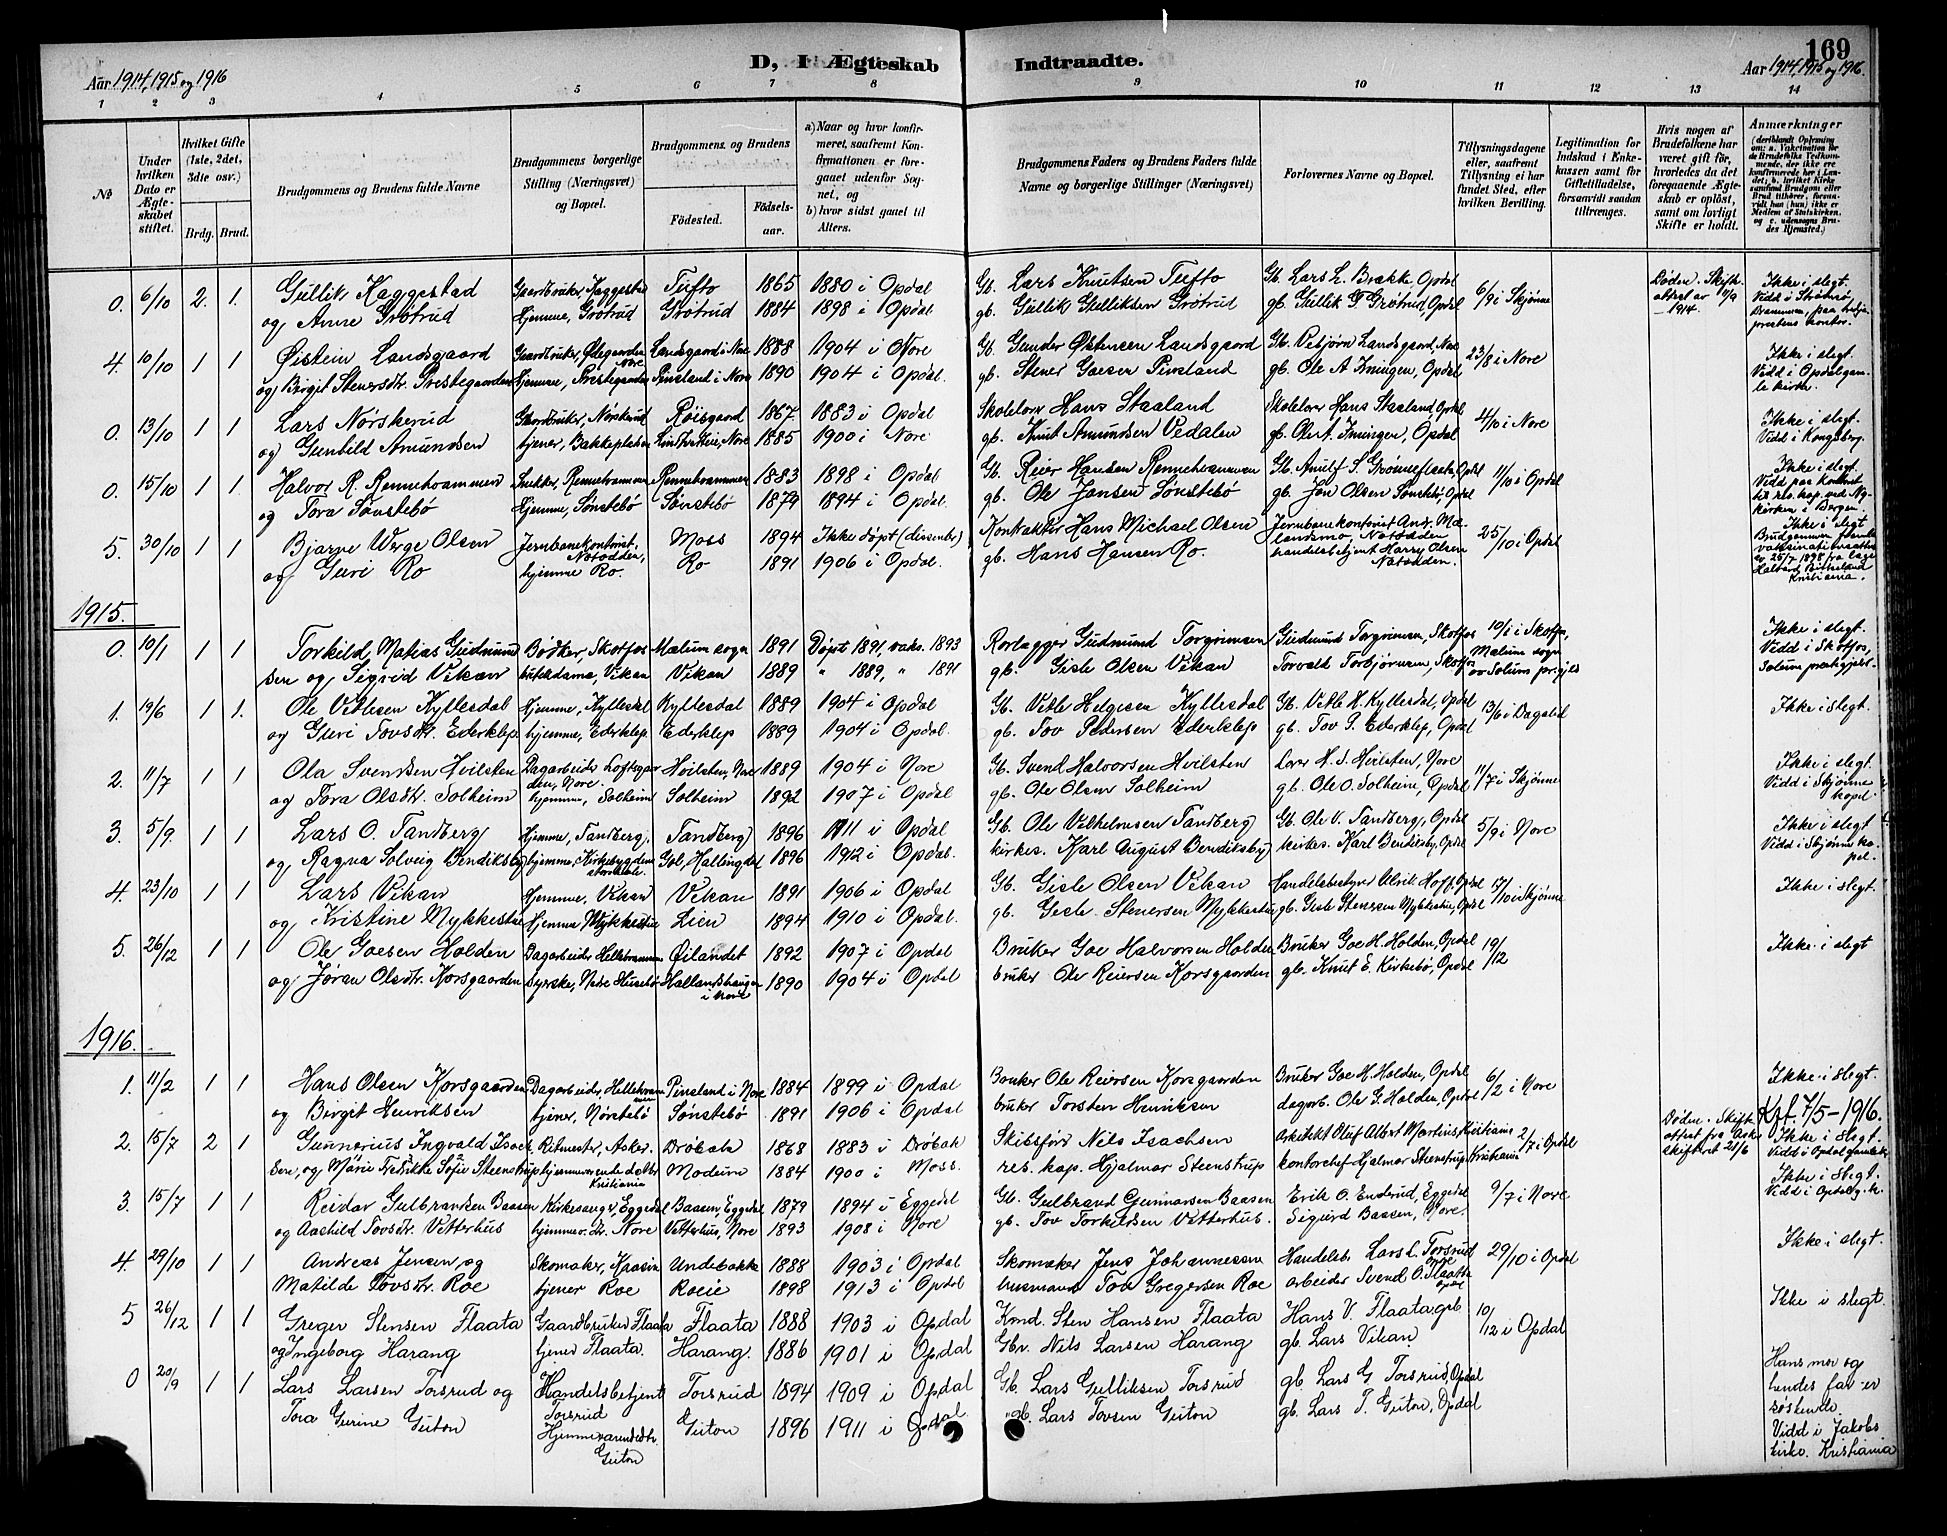 169
Aar 1914, 1915 og 1916
D, I Ægteskab Indtraadte.
Aar 1914, 1915 og 1916.
1 2 3 4 5 6 7 8 9 10 11 12 13 14
No
Under hvilken Dato er Ægteskabet stiftet.
Hvilket Gifte (1ste, 2det, 3die osv.)
Brdg. Brud.
Brudgommens og Brudens fulde Navne
Brudgommens borgerlige Stilling (Næringsvei) og Bopæl.
Brudgommens og Brudens
Fødested.
Fødselsaar.
a) Naar og hvor konfirmeret, saafremt Konfirmationen er foregaaet udenfor Sognet, og
b) hvor sidst gaaet til Alters.
Brudgommens Faders og Brudens Faders fulde Navne og borgerlige Stillinger (Næringsvei)
Forlovernes Navne og Bopæl.
Tillysningsdagene eller, saafremt Tillysning ei har fundet Sted, efter hvilken Bevilling.
Legitimation for Indskud i Enkekassen samt for Giftetilladelse, forsaavidt saadan tiltrænges.
Hvis nogen af Brudefolkene har været gift før, hvorledes da det foregaaende Ægteskab er opløst, samt om lovligt Skifte er holdt.
Anmærkninger
0. 6/10 2. 1. Gullik Haggestad Gaardbruker Haggestad Tufto 1865 1880 i Opdal Gb. Lars Knutsen Tufto Gb. Lars L. Brække, Opdal 6/9 i Skjønne Døden. Skifteattest av 10/9 – 1914. Ikke i slegt.
og Anne Grøtrud Hjemme, Grøtrud Grøtrud 1884 1898 i Opdal gb. Gullik Gulliksen Grøtrud gb. Gullik G. Grøtrud, Opdal
4. 10/10 1 1 Øistein Landsgaard Gaardbruker, Øygaarden Nore Landsgaard i Nore 1888 1904 i Nore Gb. Gunder Østensen Landsgaard Gb. Vebjørn Landsgaard, Nore 23/8 i Nore Ikke i slegt. Vidd i Opdal gamle kirke.
og Birgit Stenersdtr. Prestegaarden Hjemme, Prestegaarden Pinsland i Nore 1890 1904 i Opdal. gb. Stener Goesen Pinsland gb. Ole A Irningen, Opdal
0. 13/10 1 1 Lars Nørsterud Gaardbruker, Nørsterud Røisgaard 1867 1883 i Opdal Skolelærer Hans Staaland Skolelærer Hans Staaland, Opdal 4/10 i Nore Ikke i slegt. Vidd i Kongsberg.
og Gunhild Amundsen tjener, Bakkepladsen 1885 1900 i Nore gb. Knut Amundsen Vedalen gb. Ole A. Irningen, Opdal
0. 15/10 1 1. Halvor R. Rennehvammen Snekker, Rennehvammen Rennehvammen 1883 1898 i Opdal Gb. Reier Hansen Rennehvammen Gb. Anulf S. Grønneflaata, Opdal 11/10 i Opdal Ikke i slegt. Vidd paa kontoret til res. kap. ved Nykirken i Bergen.
og Tora Sønstebø Hjemme, Sønstebø Sønstebø 1879 1894 i Opdal. gb. Ole Jansen Sønstebø gb. Jon Olsen Sønstebø, Opdal
5. 30/10 1 1 Bjarne Werge Olsen Jernbanekontorist, Notodden, Moss 1894 Ikke døpt (dissenter) Kontraktør Hans Michael Olsen Jernbanekontorist And. Mælandsmo, Notodden 25/10 i Opdal Ikke i slegt
og Guri Ro hjemme Ro. Ro 1891 1906 i Opdal. gb. Hans Hansen Ro. handelsbetjent Harry Olsen Notodden.
1915.
0. 10/1 1 1 Torkild Matias Gudmundsen og Sigrid Vikan Bødker, Skotfos Mælum sogn 1891 Døpt 1891, vaks. 1893 Rørlægger Gudmund Torgrimsen Gudmund Torgrimsen, Skotfos 10/1 i Skotfos, Mælum sogn av Solum prgjld Ikke i slegt. Vidd i Skotfos, Solum prestegjeld.
Vikan Vikan 1889 " 1889, " 1891 gb. Gisle Olsen Vikan Torvald Torbjørnsen, Skotfos
1. 19/6 1 1. Ole Vetlesen Kyllesdal Hjemme, Kyllesdal Kyllesdal 1889 1904 i Opdal Gb. Vetle Helgesen Kyllesdal Gb. Vetle H. Kyllesdal, Opdal 13/6 i Dagalid Ikke i slegt.
og Guri Tovsdtr. Ederklep hjemme, Ederklep Ederklep 1889 1904 i Opdal. gb. Tov Pedersen Ederklep gb. Tov P. Ederklep, Opdal
2. 11/7 1 1 Ola Svendsen Hvilsten Dagarbeider Loftsgaarden, Nore Hvilsten, Nore 1889 1904 i Nore Gb. Svend Halvorsen Hvilsten Lærer H. S. Hvilsten, Nore 11/7 i Skjønne Ikke i slegt. Vidd i Skjønne kapel
og Tora Olsdtr. Solheim hjemme, Solheim Solheim 1892 1907 i Opdal gb. Ole Olsen Solheim gb. Ole O. Solheim, Opdal
3. 5/9. 1 1 Lars O. Tandberg Hjemme, Tandberg. Tandberg 1896 1911 i Opdal Gb. Ole Vilhelmsen Tandberg Gb. Ole V. Tandberg, Opdal 5/9 i Nore Ikke i slegt Vidd i Skjønne kapel.
og Ragna Solveig Bendiksby hjemme, Kirkebygden Gol, Hallingdal 1896 1912 i Opdal. kirkes. Karl August Bendiksby kirkes. Karl Bendiksby, Opdal
4. 23/10 1 1 Lars Vikan Hjemme, Vikan Vikan 1891 1906 i Opdal Gb. Gisle Olsen Vikan Handelsbestyrer Ulrik Hoff, Opdal 17/10 i Skjønne Ikke i slegt
og Kristine Mykkestue Hjemme Mykkestue Lien 1894 1910 i Opdal. gb. Gisle Stenersen Mykkestue gb. Gisle Stenersen Mykkestue, Opdal
5. 26/12 1 1 Ole Goesen Holden Dagarbeider Hellehvammen Øilandet 1892 1907 i Opdal Bruker Goe Halvorsen Holden Bruker Goe H. Holden, Opdal 19/12 Ikke i slegt
og Jøran Olsdtr. Korsgaarden Syerske, Nedre Husebø Hallandshaugen i Nore 1890 1904 i Opdal bruker Ole Reiersen Korsgaarden gb. Knut E. Kirkebø, Opdal
1916.
1. 11/2 1 1 Hans Olsen Korsgaarden Dagarbeider, Hellehvammen Pinsland i Nore 1884 1899 i Opdal Bruker Ole Reiersen Korsgaarden Bruker Goe H. Holden, Opdal 6/2 i Nore Ikke i slegt.
og Birgit Henriksen tjener, Nørstebø Sønstebø 1891 1906 i Opdal bruker Torsten Henriksen dagarb. Ole G. Holden, Opdal Kpf. 7/5–1916.
2. 15/7 2 1 Gunnerius Ingvald Isachsen, og Marie Fredrikke Sofie Steenstrup Ritmester, Asker. Drøbak 1868 1883 i Drøbak Skibsfører Nils Isachsen Arkitekt Oluf Albert Martins, Kristiania 2/7 i Opdal Døden. Skifteattest fra Aker skifteret 21/6 Ikke i slegt. Vidd i Opdal gamle k.
hjemmeværende datter Kristiania Modum 1884 1900 i Moss. res. kap. Hjalmar Steenstrup kontorchef Hjalmar Steenstrup, Kristiania
3. 15/7 1 1 Reidar Gulbrandsen Baasen Kirkesanger, Eggedal Baasen, Eggedal 1879 1894 i Eggedal Gb. Gulbrand Gunnarsen Baasen Erik O. Enderud, Eggedal 9/7 i Nore Ikke i slegt Vidd i Opdal g. k.
og Aashild Tovsdtr. Vetterhus hjemmev. dtr. Nore Vetterhus, Nore 1893 1908 i Nore gb. Tov Torkildsen Vetterhus. Sigurd Baasen, Nore.
4. 29/10 1 1 Andreas Jensen og Skomaker, Kraasen Undebakke 1888 1903 i Opdal Skomaker Jens Johannessen Handelsb. Lars L. Torsrud 29/10 i Opdal Ikke i slegt.
Matilde Tovsdtr. Roe tjener Roe Roeie 1898 1913 i Opdal husmand Tov Gregersen Roe arbeider Svend O. Flaata
5 26/12 1 1 Greger Stensen Flaata Gaardbruker Flaata Flaata 1888 1903 i Opdal Kmd. Sten Hansen Flaata Hans V. Flaata, gb 10/12 i Opdal Ikke i slegt.
og Ingeborg Harang tjener Flaata. Harang. 1886 1901 i Opdal Gbr. Nils Larsen Harang gb. Lars Vikan
0 20/9 1 1 Lars Larsen Torsrud og Handelsbetjent Torsrud Torsrud 1894 1909 i Opdal Gb. Lars Gulliksen Torsrud gb Lars G Torsrud, Opdal Hans mor og hendes far er søskende. Vidd i Jakobs kirke. Kristiania
Tora Gurine Guton Hjemmeværende dtr Guton Guton 1896 1911 i Opdal. gb. Lars Tovsen Guton gb. Lars T. Guton, Opdal